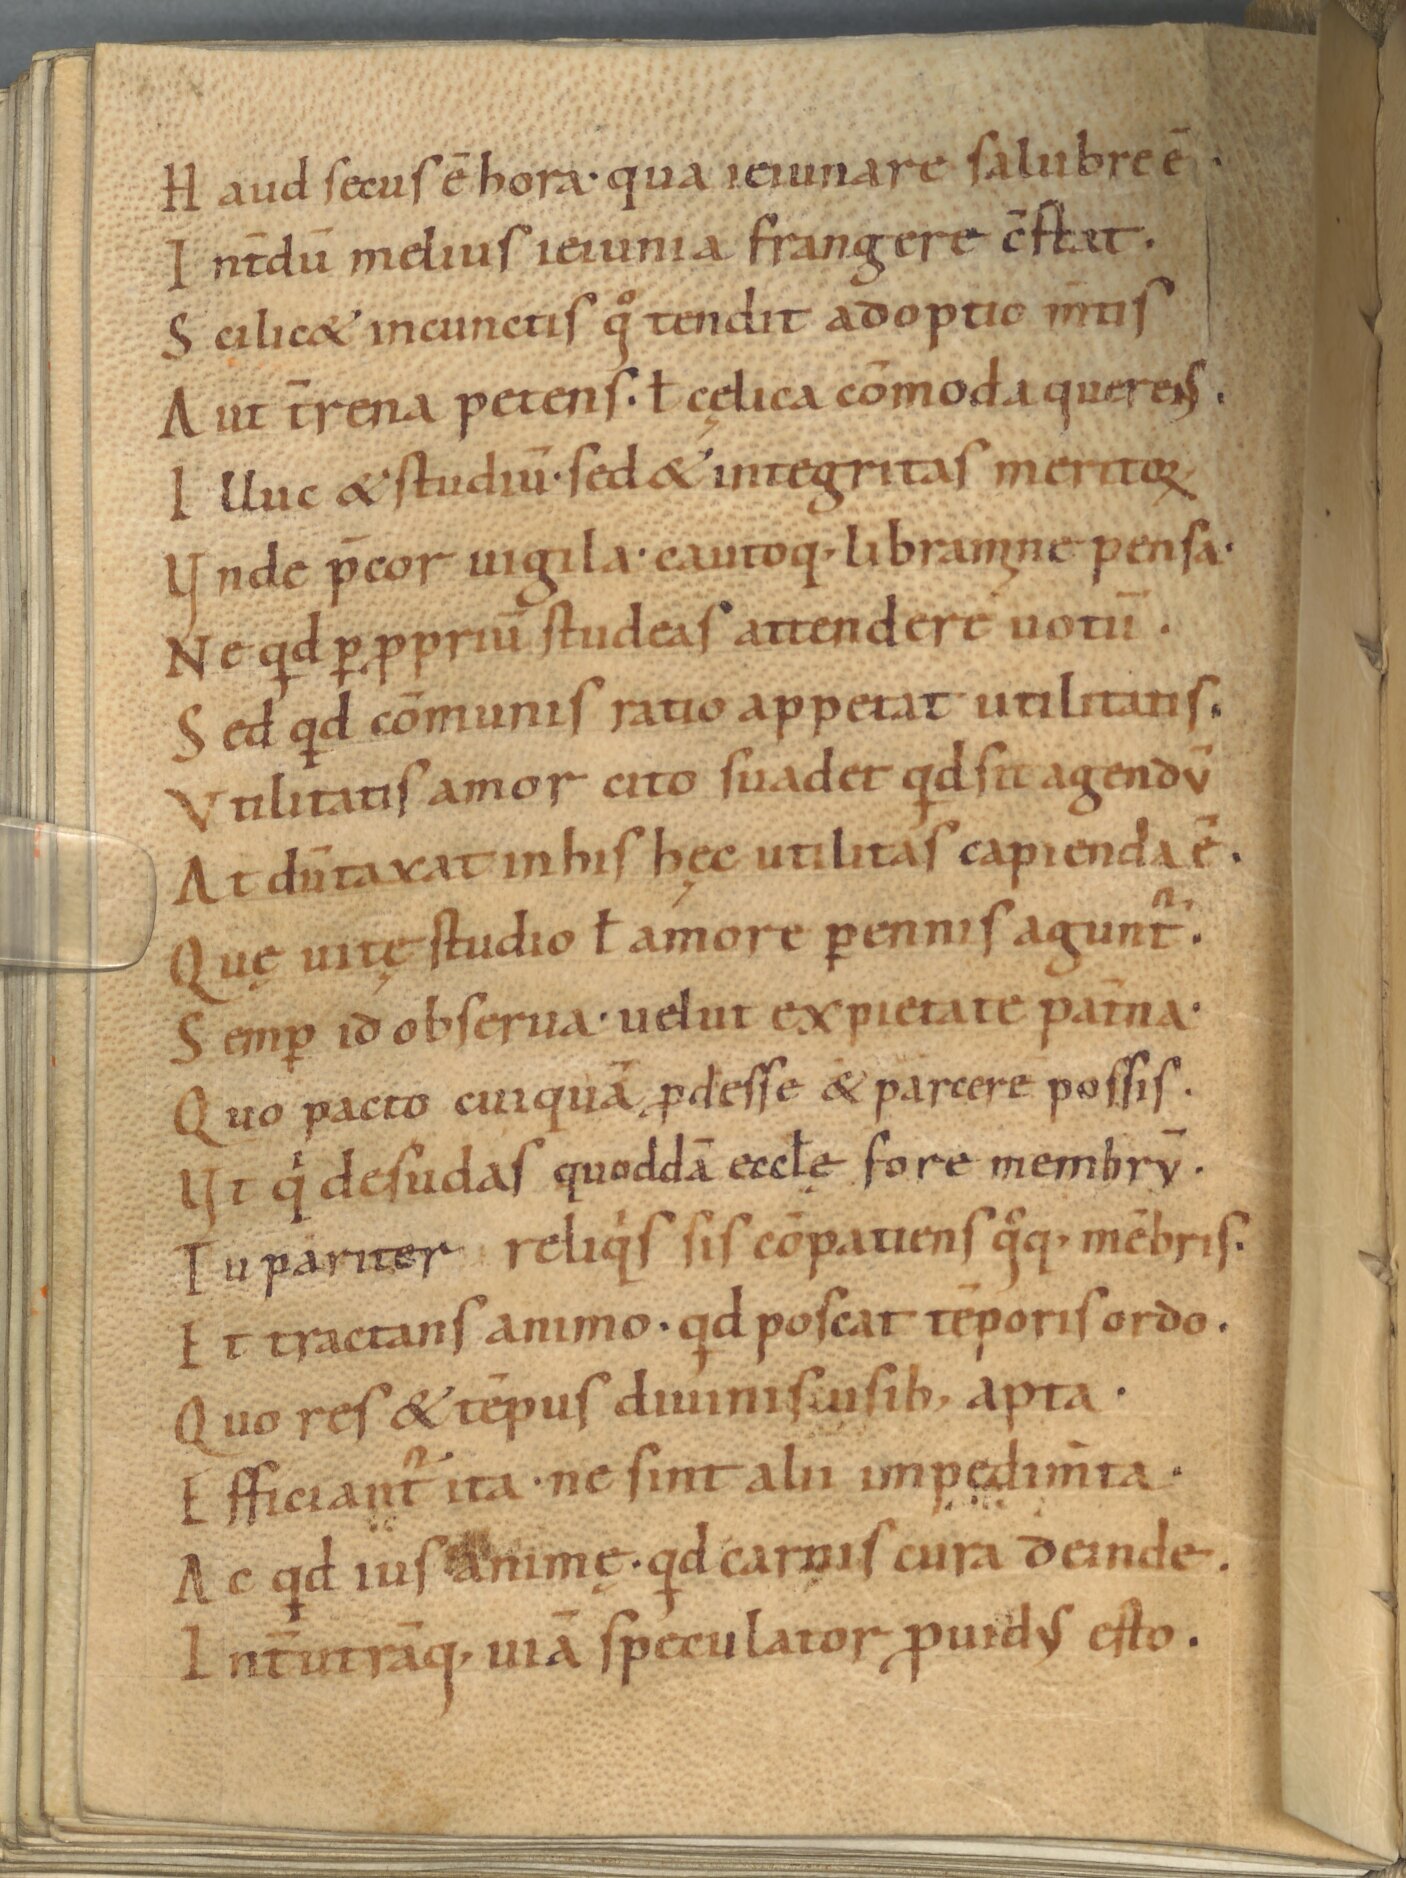 Haud secus ē hora· qua ieiunare salubre ē ·
Int̄dū melius ieiunia frangere c̄stat.
Scilic& incunctis qͦ tendit adoptio m̄tis
Aut t̄rena petens· ł cęlica cōmoda querens.
Illuc & studiū· sed & integritas meritoꝝ
Vnde p̄cor uigila· cautoq; libramine pensa·
Ne qd ꝑ ꝓpriū studeas attendere uotū .
Sed qd cōmunis ratio appetat utilitatis.
Vtilitatis amor cito suadet qd sit agendū
At dūtaxat in his hęc utilitas capienda ē .
Quę uitę studio ł amore ꝑennis agunt᷑ .
Semꝑ id obserua· uelut ex pietate pat̄na·
Quo pacto cuiquā ꝓdesse & parcere possis .
Vt qͥ desudas quoddā eccłę fore membrū .
Tu pariter reliqͥs sis cōpatiens qͦq; mēbris.
Et tractans animo· qd poscat tēporis ordo .
Quo res & tēpus diuinis usib; apta ·
Efficiant᷑ ita· ne sint alii impedim̄ta ·
Ac qd ius animę· qd carnis cura deinde .
Int̄ utrāq; uiā speculator ꝓuidꝰ esto .